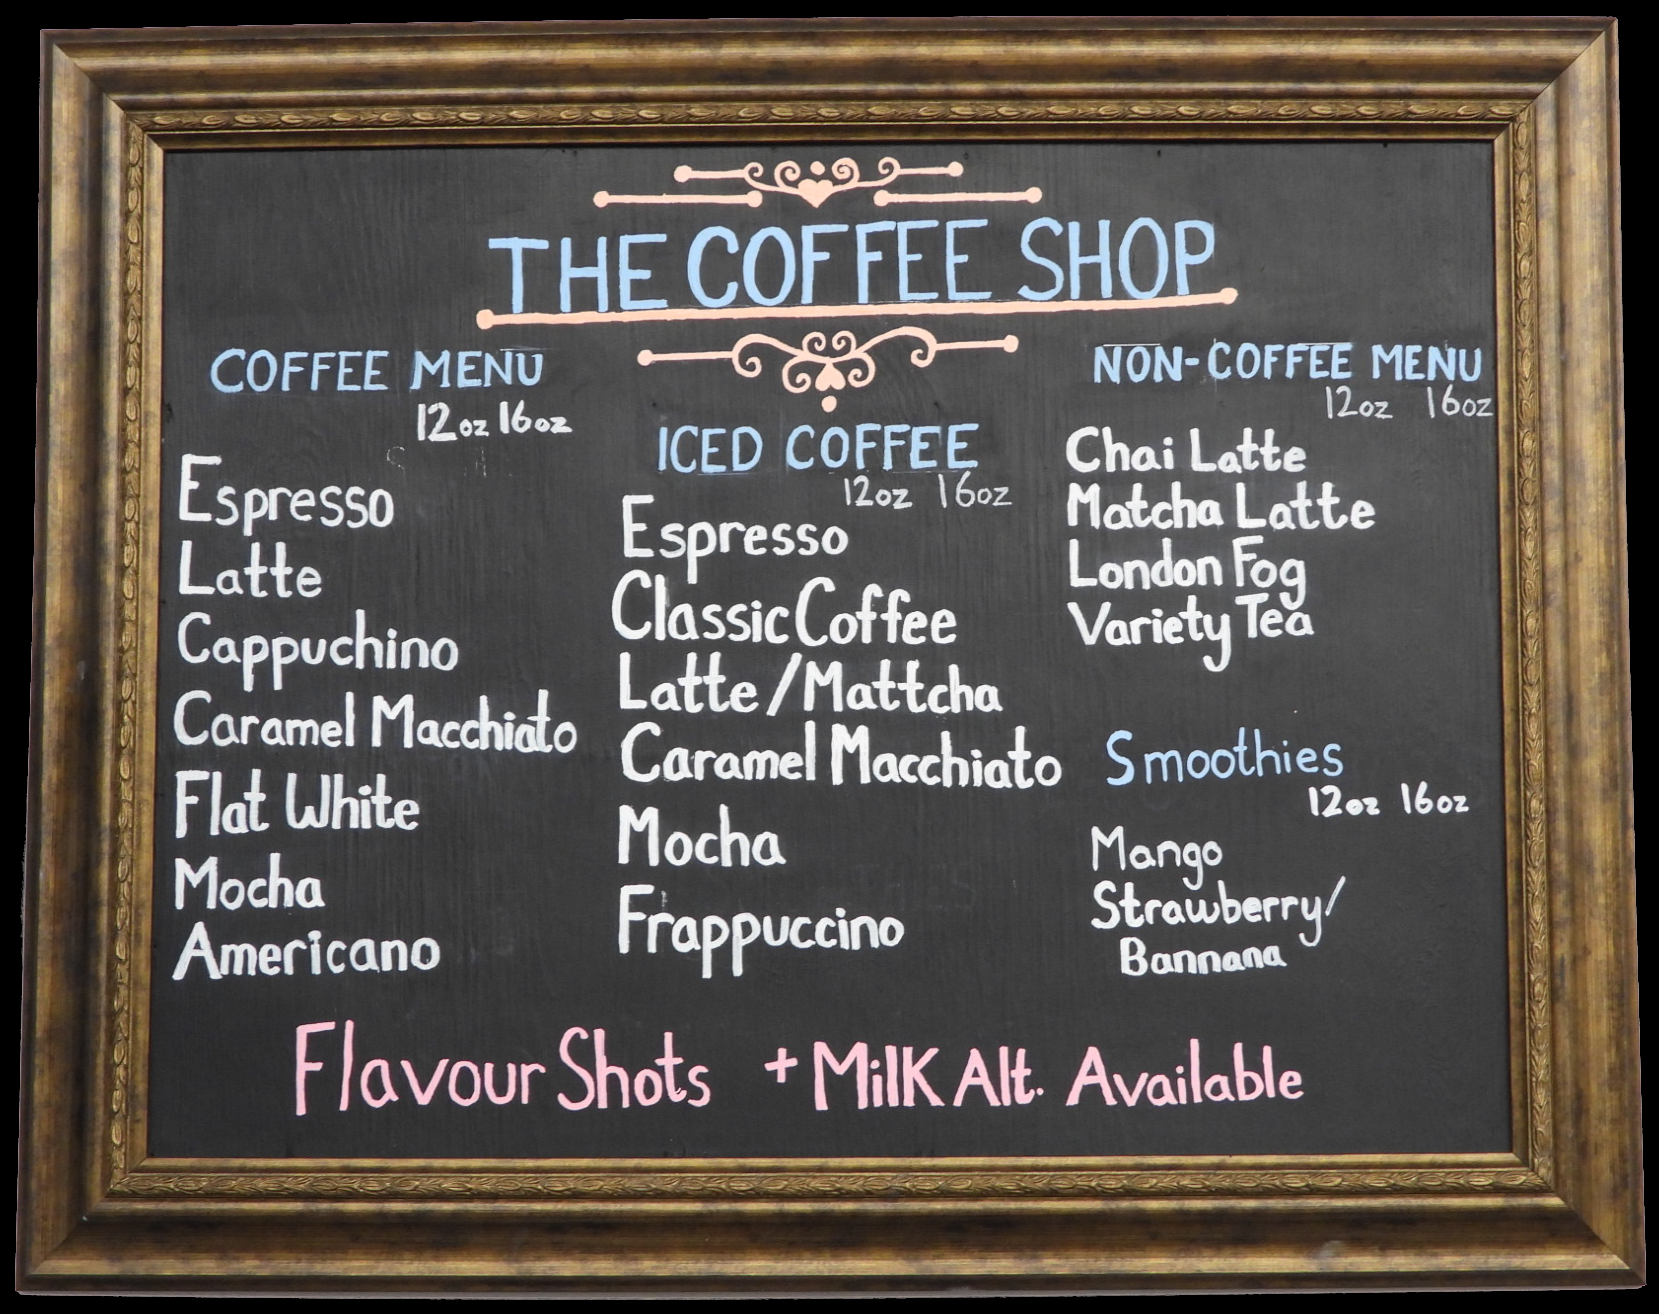 THE COFFEE SHOP
COFFEE MENU
12oz 16oz
Espresso
Latte
Cappuchino
Caramel Macchiato
Flat White
Mocha
Americano
ICED COFFEE
12oz 16oz
Espresso
Classic Coffee
Latte/Mattcha
Caramel Macchiato
Mocha
Frappuccino
NON-COFFEE MENU
12oz 16oz
Chai Latte
Matcha Latte
London Fog
Variety Tea
Smoothies
12oz 16oz
Mango
Strawberry/
Bannana
Flavour Shots + Milk Alt. Available